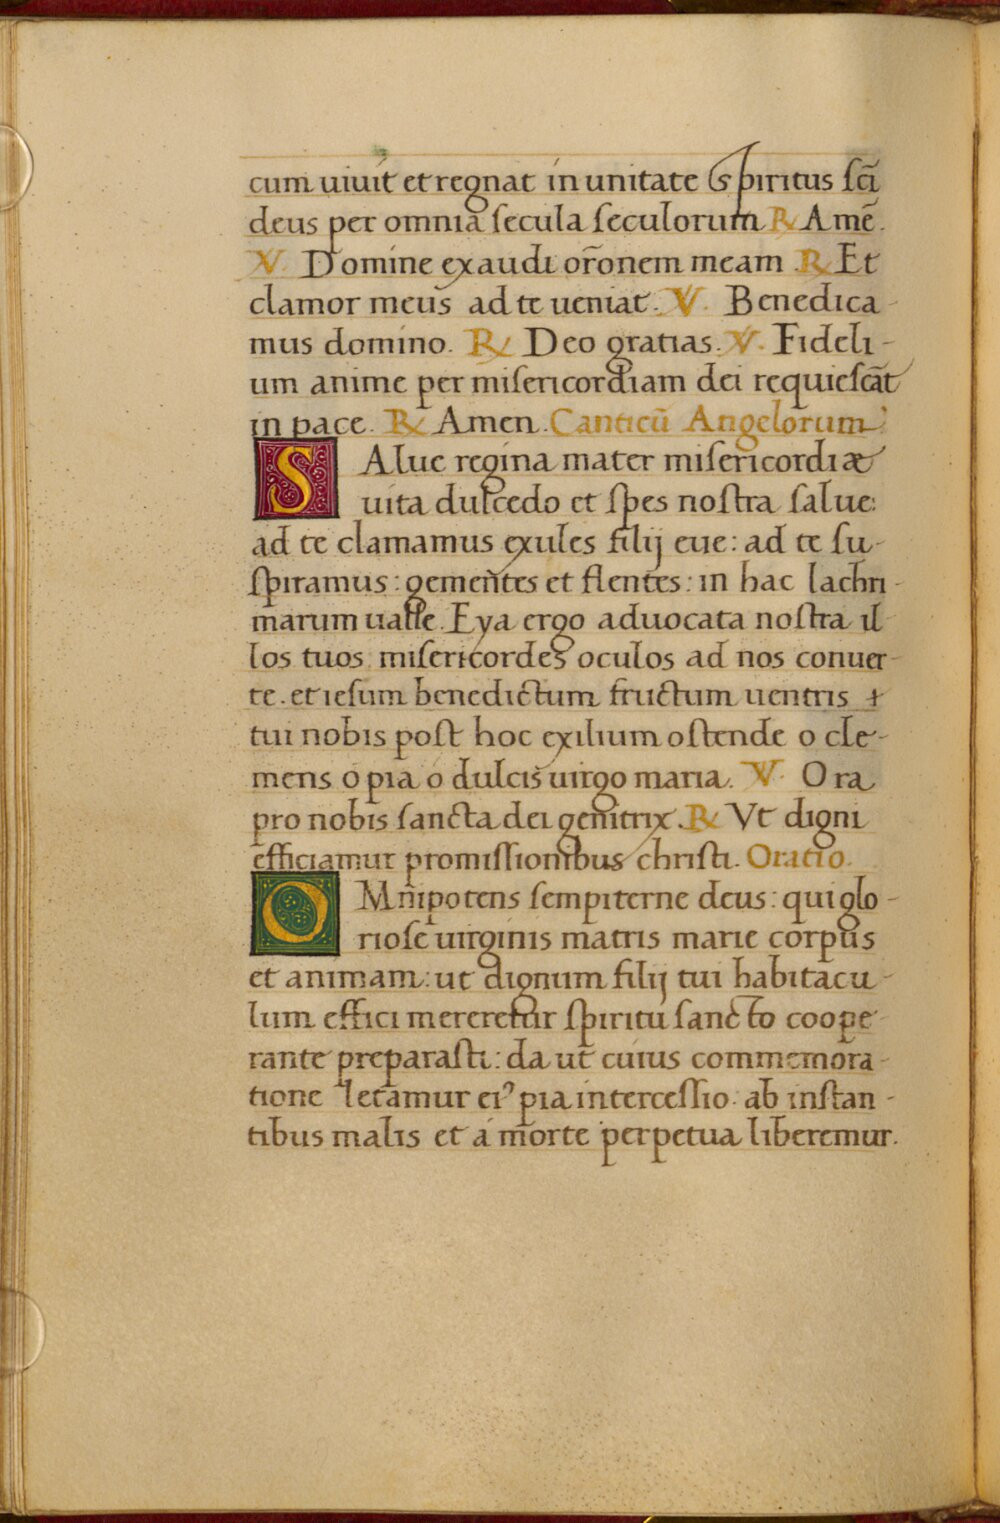 cum uiuit et regnat in unitate Spiritus scı̃
deus per omnia ſecula ſeculorum ℟ Amẽ.
V. Domine exaudi or̃onem meam ℟ Et
clamor meus ad te ueniat. V. Benedica-
mus domino. ℟ Deo gratias. V. Fideli-
um anime per miſericordiam dei requieſcãt
in pace. ℟ Amen. Canticũ Angelorum
SAlue regina mater miſericordiæ
uita dulcedo et ſpes noſtra ſalue:
ad te clamamus exules filij eue: ad te ſu-
ſpiramus: gementes et flentes: in hac lachri-
marum ualle. Eya ergo aduocata noſtra il
los tuos miſericordes oculos ad nos conuer-
te. et ieſum benedictum fructum uentris +
tui nobis poſt hoc exilium oſtende o cle-
mens o pia o dulcis uirgo maria. V. Ora
pro nobis ſancta dei genitrix. ℟ Vt digni
efficiamur promiſſionibus chriſti. Oratio.
OMñipotens ſempiterne deus: qui glo-
rioſe uirginis matris marie corpus
et animam: ut dignum filij tui habitacu-
lum effici mereretur ſpiritu ſancto coope-
rante preparaſti: da ut cuius commemora-
tione letamur ei⁹ pia interceſſio. ab inſtan-
tibus malis et a morte perpetua liberemur.